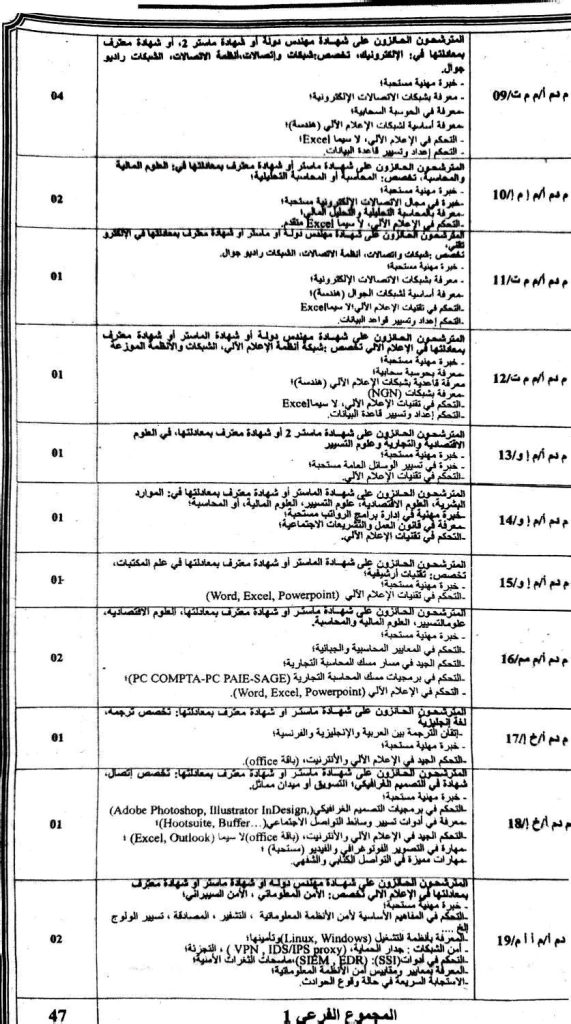 م د م أ/م م ت/09
المترشحون الحائزون على شهادة مهندس دولة أو شهادة ماستر 2، أو شهادة معترف
بمعادلتها في: الإلكترونيك، تخصص:شبكات وإتصالات،أنظمة الاتصالات، الشبكات راديو
جوال.
- خبرة مهنية مستحبة؛
- معرفة بشبكات الاتصالات الإلكترونية؛
-معرفة في الحوسبة السحابية؛
-معرفة أساسية لشبكات الإعلام الآلي (هندسة)؛
- التحكم في الإعلام الآلي، لا سيما Excel؛
- التحكم إعداد وتسيير قاعدة البيانات.
04
م د م أ/م إ م إ/10
المترشحون الحائزون على شهادة ماستر أو شهادة معترف بمعادلتها في: العلوم المالية
والمحاسبة، تخصص: المحاسبة أو المحاسبة التحليلية؛
- خبرة مهنية مستحبة؛
- خبرة في مجال الاتصالات الإلكترونية مستحبة؛
-معرفة بالمحاسبة التحليلية والتحليل المالي؛
-التحكم في الإعلام الآلي، لا سيما Excel متقدم.
02
م د م أ/م م ت/11
المترشحون الحائزون على شهادة مهندس دولة أو ماستر أو شهادة معترف بمعادلتها في الإلكترو
تقني،
تخصص :شبكات واتصالات، أنظمة الاتصالات، الشبكات راديو جوال.
- خبرة مهنية مستحبة؛
- معرفة بشبكات الاتصالات الإلكترونية؛
-معرفة أساسية لشبكات الجوال (هندسة)؛
-التحكم في تقنيات الإعلام الآلي،لا سيماExcel
-التحكم إعداد وتسيير قواعد البيانات.
01
م د م أ/م م ت/12
المترشحون الحائزون على شهادة مهندس دولة أو شهادة الماستر أو شهادة معترف
بمعادلتها في الإعلام الآلي تخصص :شبكة أنظمة الإعلام الآلي، الشبكات والأنظمة الموزعة
- خبرة مهنية مستحبة؛
-معرفة بحوسبة سحابية؛
معرفة قاعدية بشبكات الإعلام الآلي (هندسة)؛
-معرفة بشبكات (NGN)
-التحكم في تقنيات الإعلام الآلي، لا سيماExcel
-التحكم إعداد وتسيير قاعدة البيانات.
01
م د م أ/م إ و/13
المترشحون الحائزون على شهادة ماستر 2 أو شهادة معترف بمعادلتها، في العلوم
الاقتصادية والتجارية وعلوم التسيير
- خبرة مهنية مستحبة؛
- خبرة في تسيير الوسائل العامة مستحبة؛
-التحكم في تقنيات الإعلام الآلي.
01
م د م أ/م إ و/14
المترشحون الحائزون على شهادة الماستر أو شهادة معترف بمعادلتها في: الموارد
البشرية، العلوم الاقتصادية، علوم التسيير، العلوم المالية، أو المحاسبة؛
-خبرة مهنية في إدارة برامج الرواتب مستحبة؛
-معرفة في قانون العمل والتشريعات الاجتماعية؛
-التحكم في تقنيات الإعلام الآلي.
01
م د م أ/م إ و/15
المترشحون الحائزون على شهادة الماستر أو شهادة معترف بمعادلتها في علم المكتبات،
تخصص: تقنيات أرشيفية؛
- خبرة مهنية مستحبة؛
-التحكم في تقنيات الإعلام الآلي (Word, Excel, Powerpoint)
01
م د م أ/م مم/16
المترشحون الحائزون على شهادة ماستر أو شهادة معترف بمعادلتها، العلوم الاقتصادية،
علومالتسيير، العلوم المالية والمحاسبة.
- خبرة مهنية مستحبة؛
-التحكم في المعايير المحاسبية والجبائية؛
-التحكم الجيد في مسار مسك المحاسبة التجارية؛
-التحكم في برمجيات مسك المحاسبة التجارية (PC COMPTA-PC PAIE-SAGE)؛
- التحكم في الإعلام الآلي (Word, Excel, Powerpoint).
02
م د م أ/خ إ/17
المترشحون الحائزون على شهادة ماستر أو شهادة معترف بمعادلتها: تخصص ترجمة،
لغة إنجليزية
-إتقان الترجمة بين العربية والإنجليزية والفرنسية؛
- خبرة مهنية مستحبة؛
-التحكم الجيد في الإعلام الآلي والأنترنيت، (باقة office).
01
م دم أ/خ إ/18
المترشحون الحائزون على شهادة ماستر أو شهادة معترف بمعادلتها: تخصص إتصال،
شهادة في التصميم الغرافيكي؛ التسويق أو ميدان مماثل.
- خبرة مهنية مستحبة؛
-التحكم في برمجيات التصميم الغرافيكي(Adobe Photoshop, Illustrator InDesign,)
-معرفة في أدوات تسيير وسائط التواصل الاجتماعي(Hootsuite, Buffer…)؛
-التحكم الجيد في الإعلام الآلي والأنترنيت، (باقة office)لا سيما (Excel, Outlook) ؛
-مهارة في التصوير الفوتوغرافي والفيديو (مستحبة) ؛
-مهارات مميزة في التواصل الكتابي والشفهي.
01
م دم أ/م أ أ/19
المترشحون الحائزون على شهادة مهندس دولة أو شهادة ماستر أو شهادة معترف
بمعادلتها في الإعلام الآلي تخصص: الأمن المعلوماتي ، الأمن السيبراني؛
- خبرة مهنية مستحبة؛
-التحكم في المفاهيم الأساسية لأمن الأنظمة المعلوماتية ، التشفير ، المصادقة ، تسيير الولوج
إلخ ...
-المعرفة بأنظمة التشغيل (Linux, Windows)وتأمينها؛
- أمن الشبكات : جدار الحماية، (VPN , IDS/IPS proxy) ، التجزئة؛
-التحكم في أدوات(SSI): (SIEM , EDR)،ماسحات الثغرات الأمنية؛
-المعرفة بمعايير ومقاييس أمن الأنظمة المعلوماتية؛
-الاستجابة السريعة في حالة وقوع الحوادث.
02
المجموع الفرعي 1
47